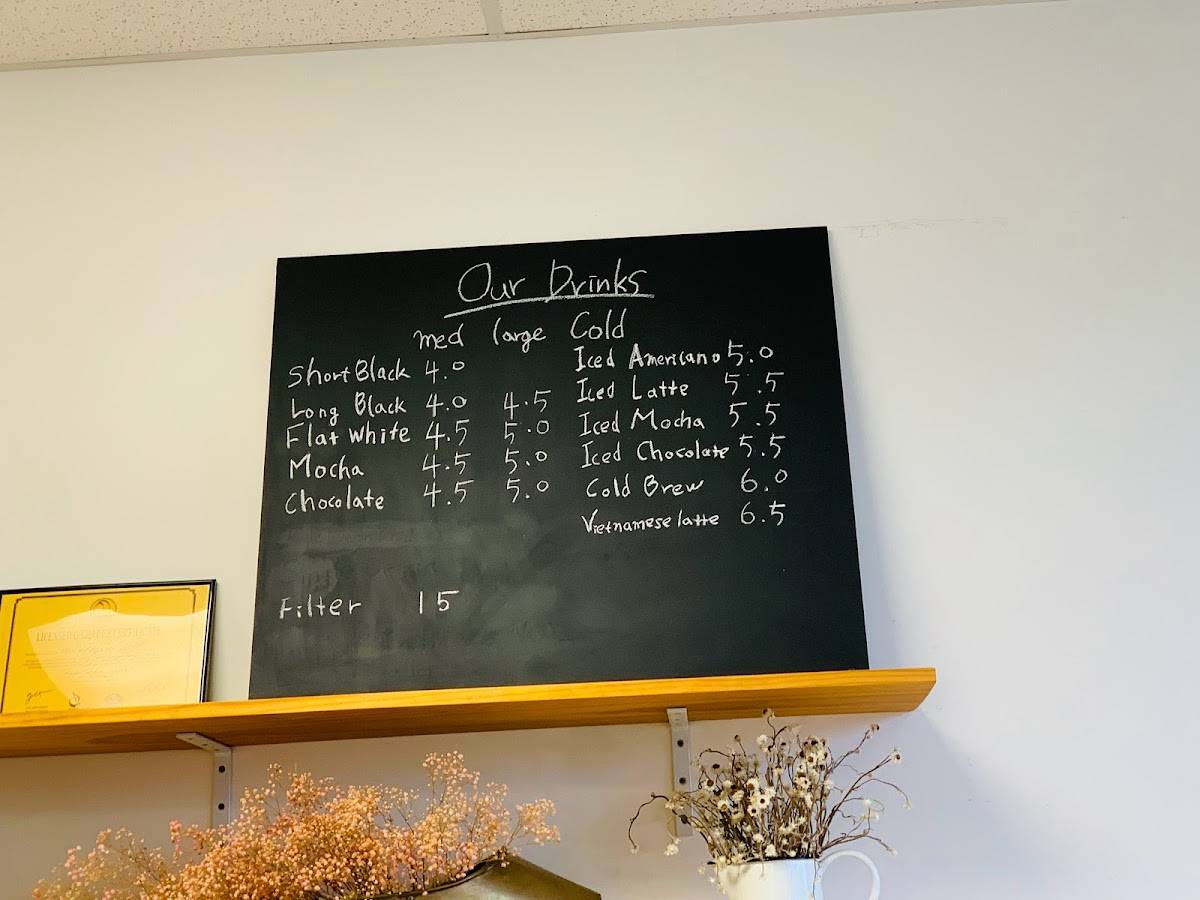 Our Drinks
med large
Short Black 4.0
Long Black 4.0 4.5
Flat White 4.5 5.0
Mocha 4.5 5.0
Chocolate 4.5 5.0
Filter 15
Cold
Iced Americano 5.0
Iced Latte 5.5
Iced Mocha 5.5
Iced Chocolate 5.5
Cold Brew 6.0
Vietnamese latte 6.5